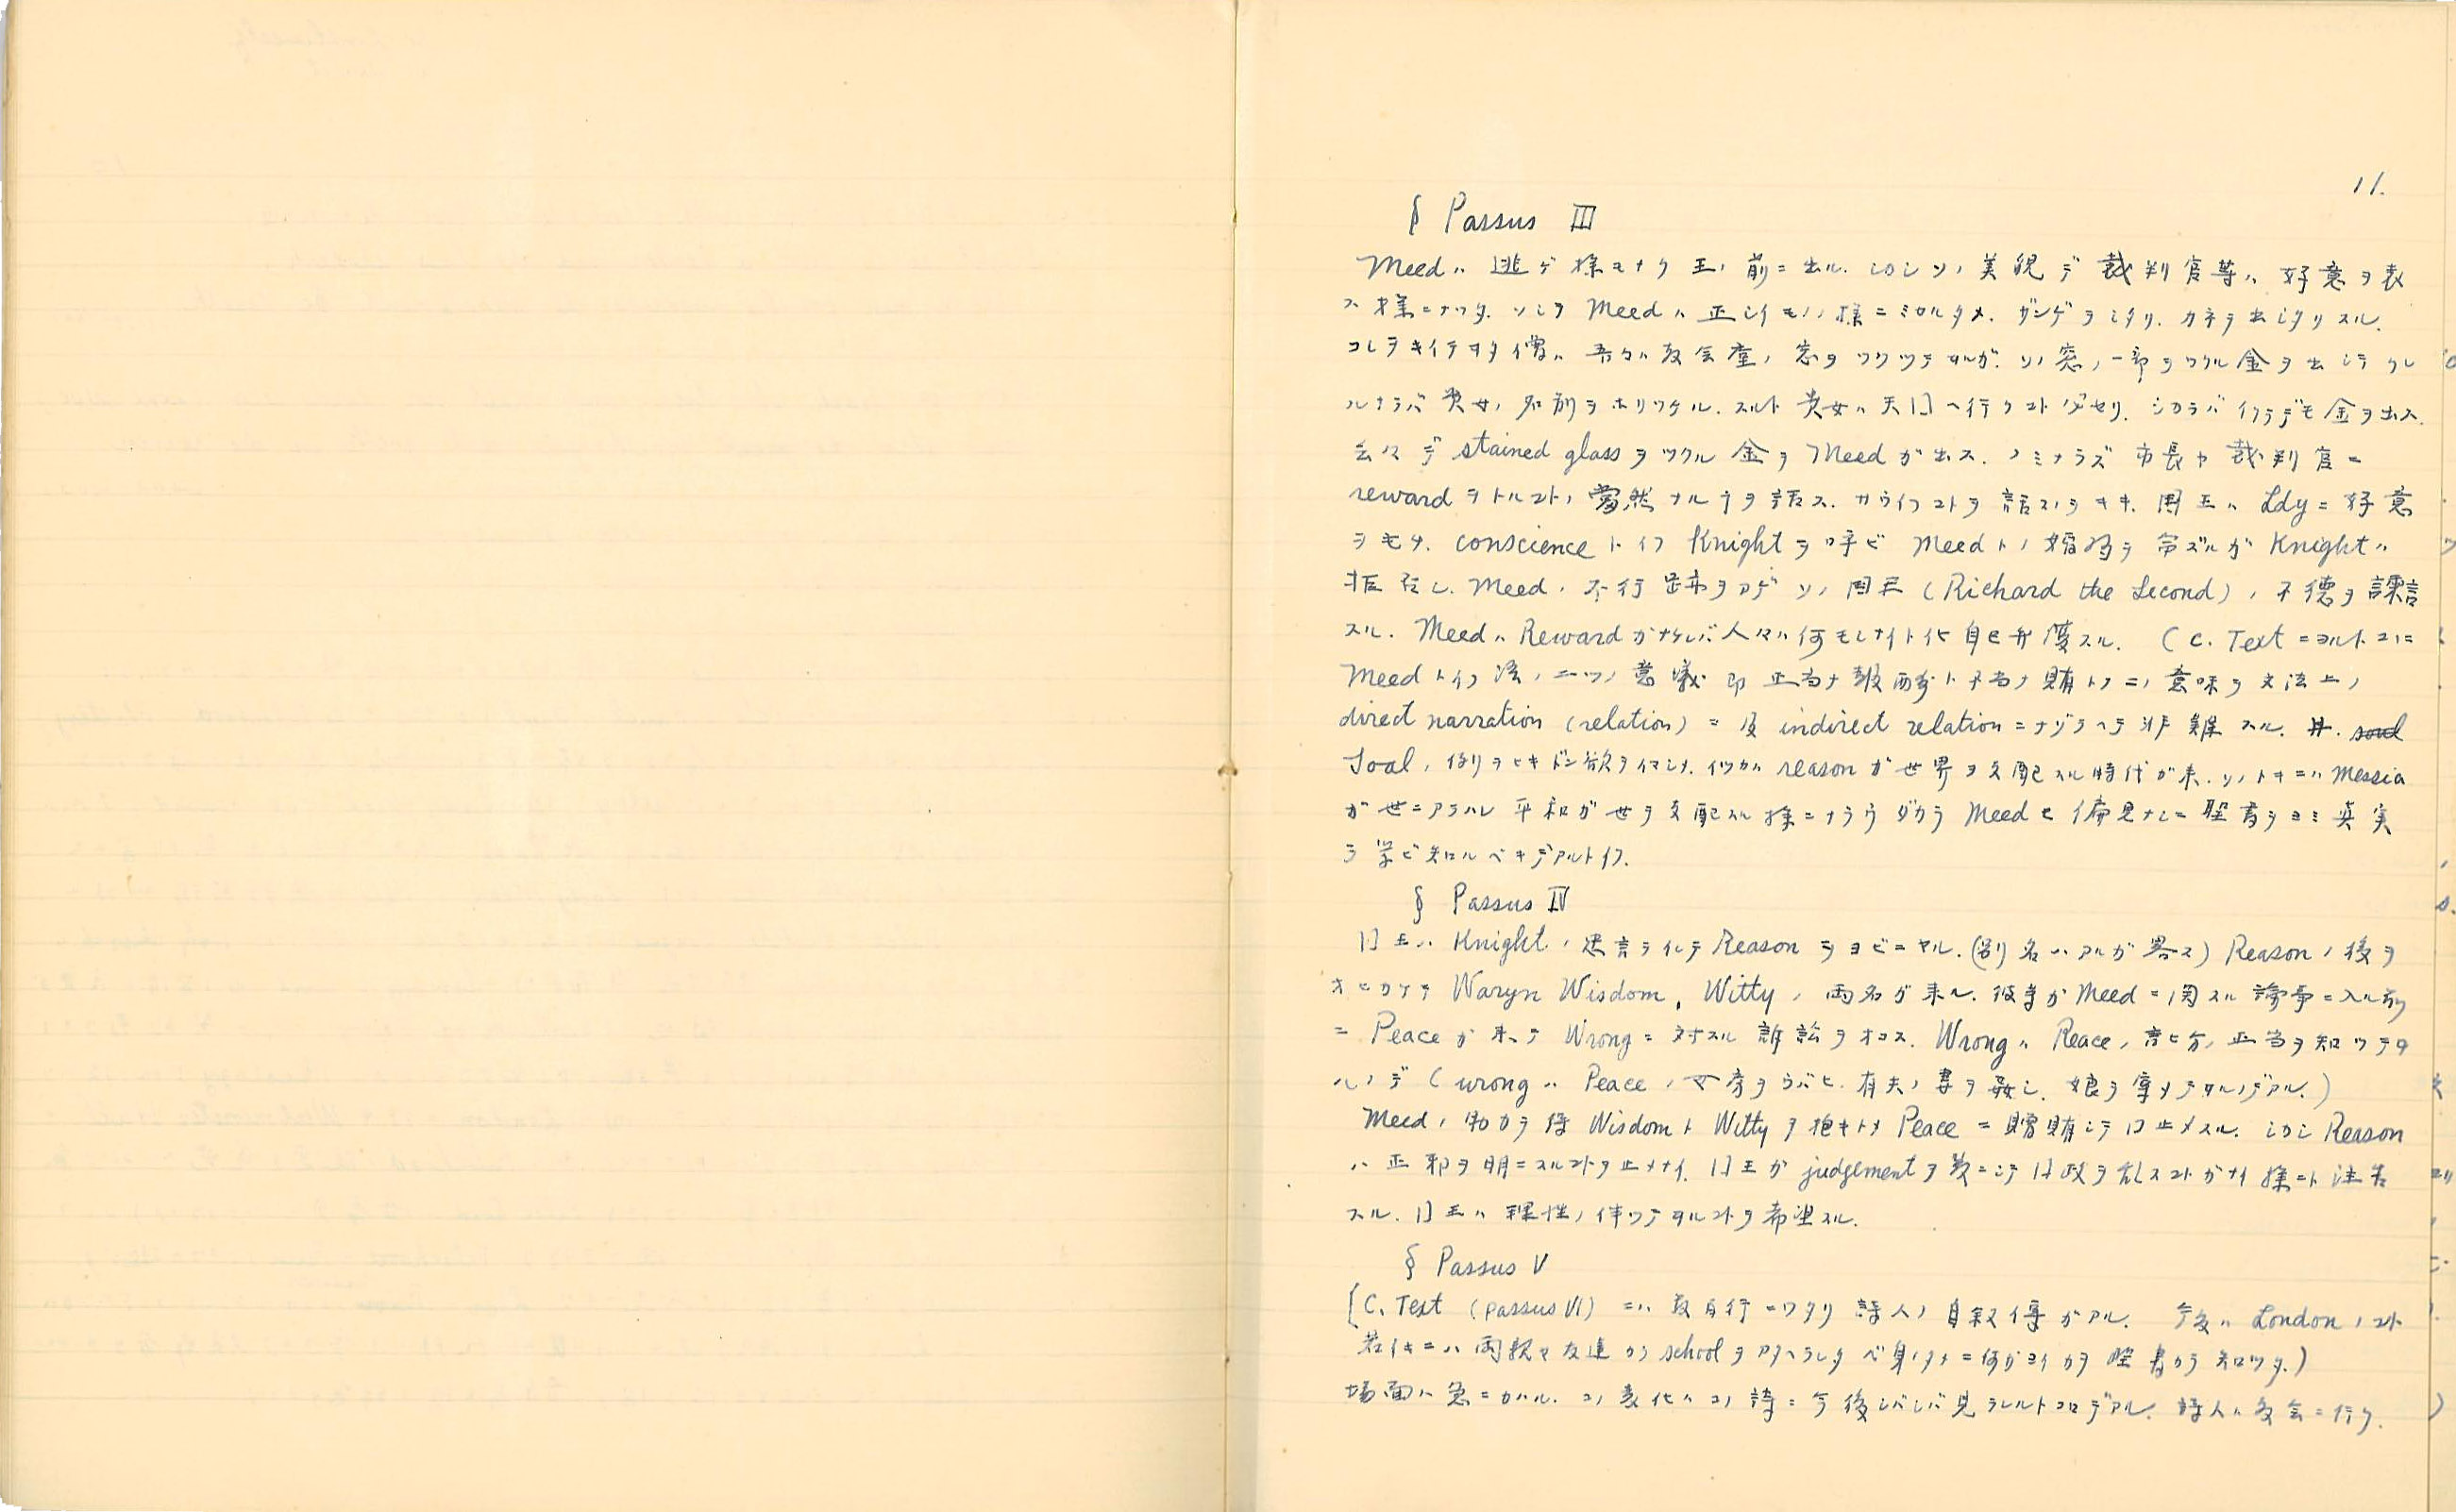 11.
§ Passus III
Meedハ 逃ゲ様モナク 王ノ前ニ出ル. シカシソノ美貌デ 裁判官等ハ 好意ヲ表
ス様ニナツタ. ソシテ Meedハ 正シイモノノ様ニミセルタメ. ザンゲヲシタリ. カネヲ出シタリスル.
コレヲキイテヰタ僧ハ 吾々ハ教会堂ノ窓ヲツクツテヰルガ. ソノ窓ノ一部ヲツクル金ヲ出シテクレ
ルナラバ 貴女ノ名前ヲホリツケル. スルト貴女ハ天国ヘ行クコト 。シカラバ イクラデモ金ヲ出ス.
云々デ stained glassヲツクル金ヲ Meedガ出ス. ノミナラズ 市長ヤ裁判官ニ
rewardヲトルコトノ当然ナル ヲ話ス. カウイフコトヲ話スノヲキキ. 国王ハ Ldyニ好意
ヲモチ. conscienceトイフ Knightヲ呼ビ Meedトノ婚約ヲ命ズルガ Knightハ
拒否シ. Meedノ不行跡ヲアゲ ソノ国王 (Richard the Second)ノ不徳ヲ諫言
スル. Meedハ Rewardガナケレバ人々ハ何モシナイト 自己弁護スル. (C. Textニヨルト コヽニ
Meedトイフ 語ノ二ツノ意義 即 正当ナ報酬ト不当ナ賄トノ二ノ意味ヲ文法上ノ
direct narration (relation)ニ 及 indirect relationニナゾラヘテ非難スル.
Soalノ例ヲヒキドン欲ヲイマシメ. イツカハ reasonガ世界ヲ支配スル時代ガ来. ソノトキニハ Messia
ガ世ニアラハレ 平和ガ世ヲ支配スル様ニナラウ ダカラ Meedモ偏見ナシニ聖書ヲヨミ真実
ヲ学ビ知ルベキデアルトイフ.
§ Passus IV
国王ハ Knightノ忠言ヲイレテ Reasonヲヨビニヤル. (別名ハアルガ略ス) Reasonノ後ヲ
オヒカケテ Waryn Wisdom, Wittyノ両名ガ来ル. 彼等ガ Meedニ関スル論争ニ入ル前
ニ Peaceガ来テ Wrongニ対スル訴訟ヲオコス. Wrongハ Peaceノ言ヒ分ノ正当ヲ知ツテヰ
ルノデ (wrongハ Peaceノ女房ヲウバヒ. 有夫ノ妻ヲ姦シ. 娘ヲ辱メテヰルノデアル.)
Meedノ助力ヲ得 Wisdomト Wittyヲ抱キトメ Peaceニ贈賄シテ口止メスル. シカシ Reason
ハ 正邪ヲ明ニスルコトヲ止メナイ. 国王ガ judgementヲ シテ国政ヲ乱スコトガナイ様ニト注告
スル. 国王ハ 理性ノ伴ツテヰルコトヲ希望スル.
§ Passus V
[C. Text (passus VI) ニハ 数百行ニワタリ詩人ノ自叙伝ガアル. 今後ハ Londonノコト
若イトキニハ両親ヤ友達カラ schoolヲアタヘラレタ 身ノタメニ何ガヨイカヲ聖書カラ知ツタ.)
場面ハ急ニカハル. コノ変化ハコノ詩ニ今後シバシバ見ラレルトコロデアル. 詩人ハ教会ニ行ク.